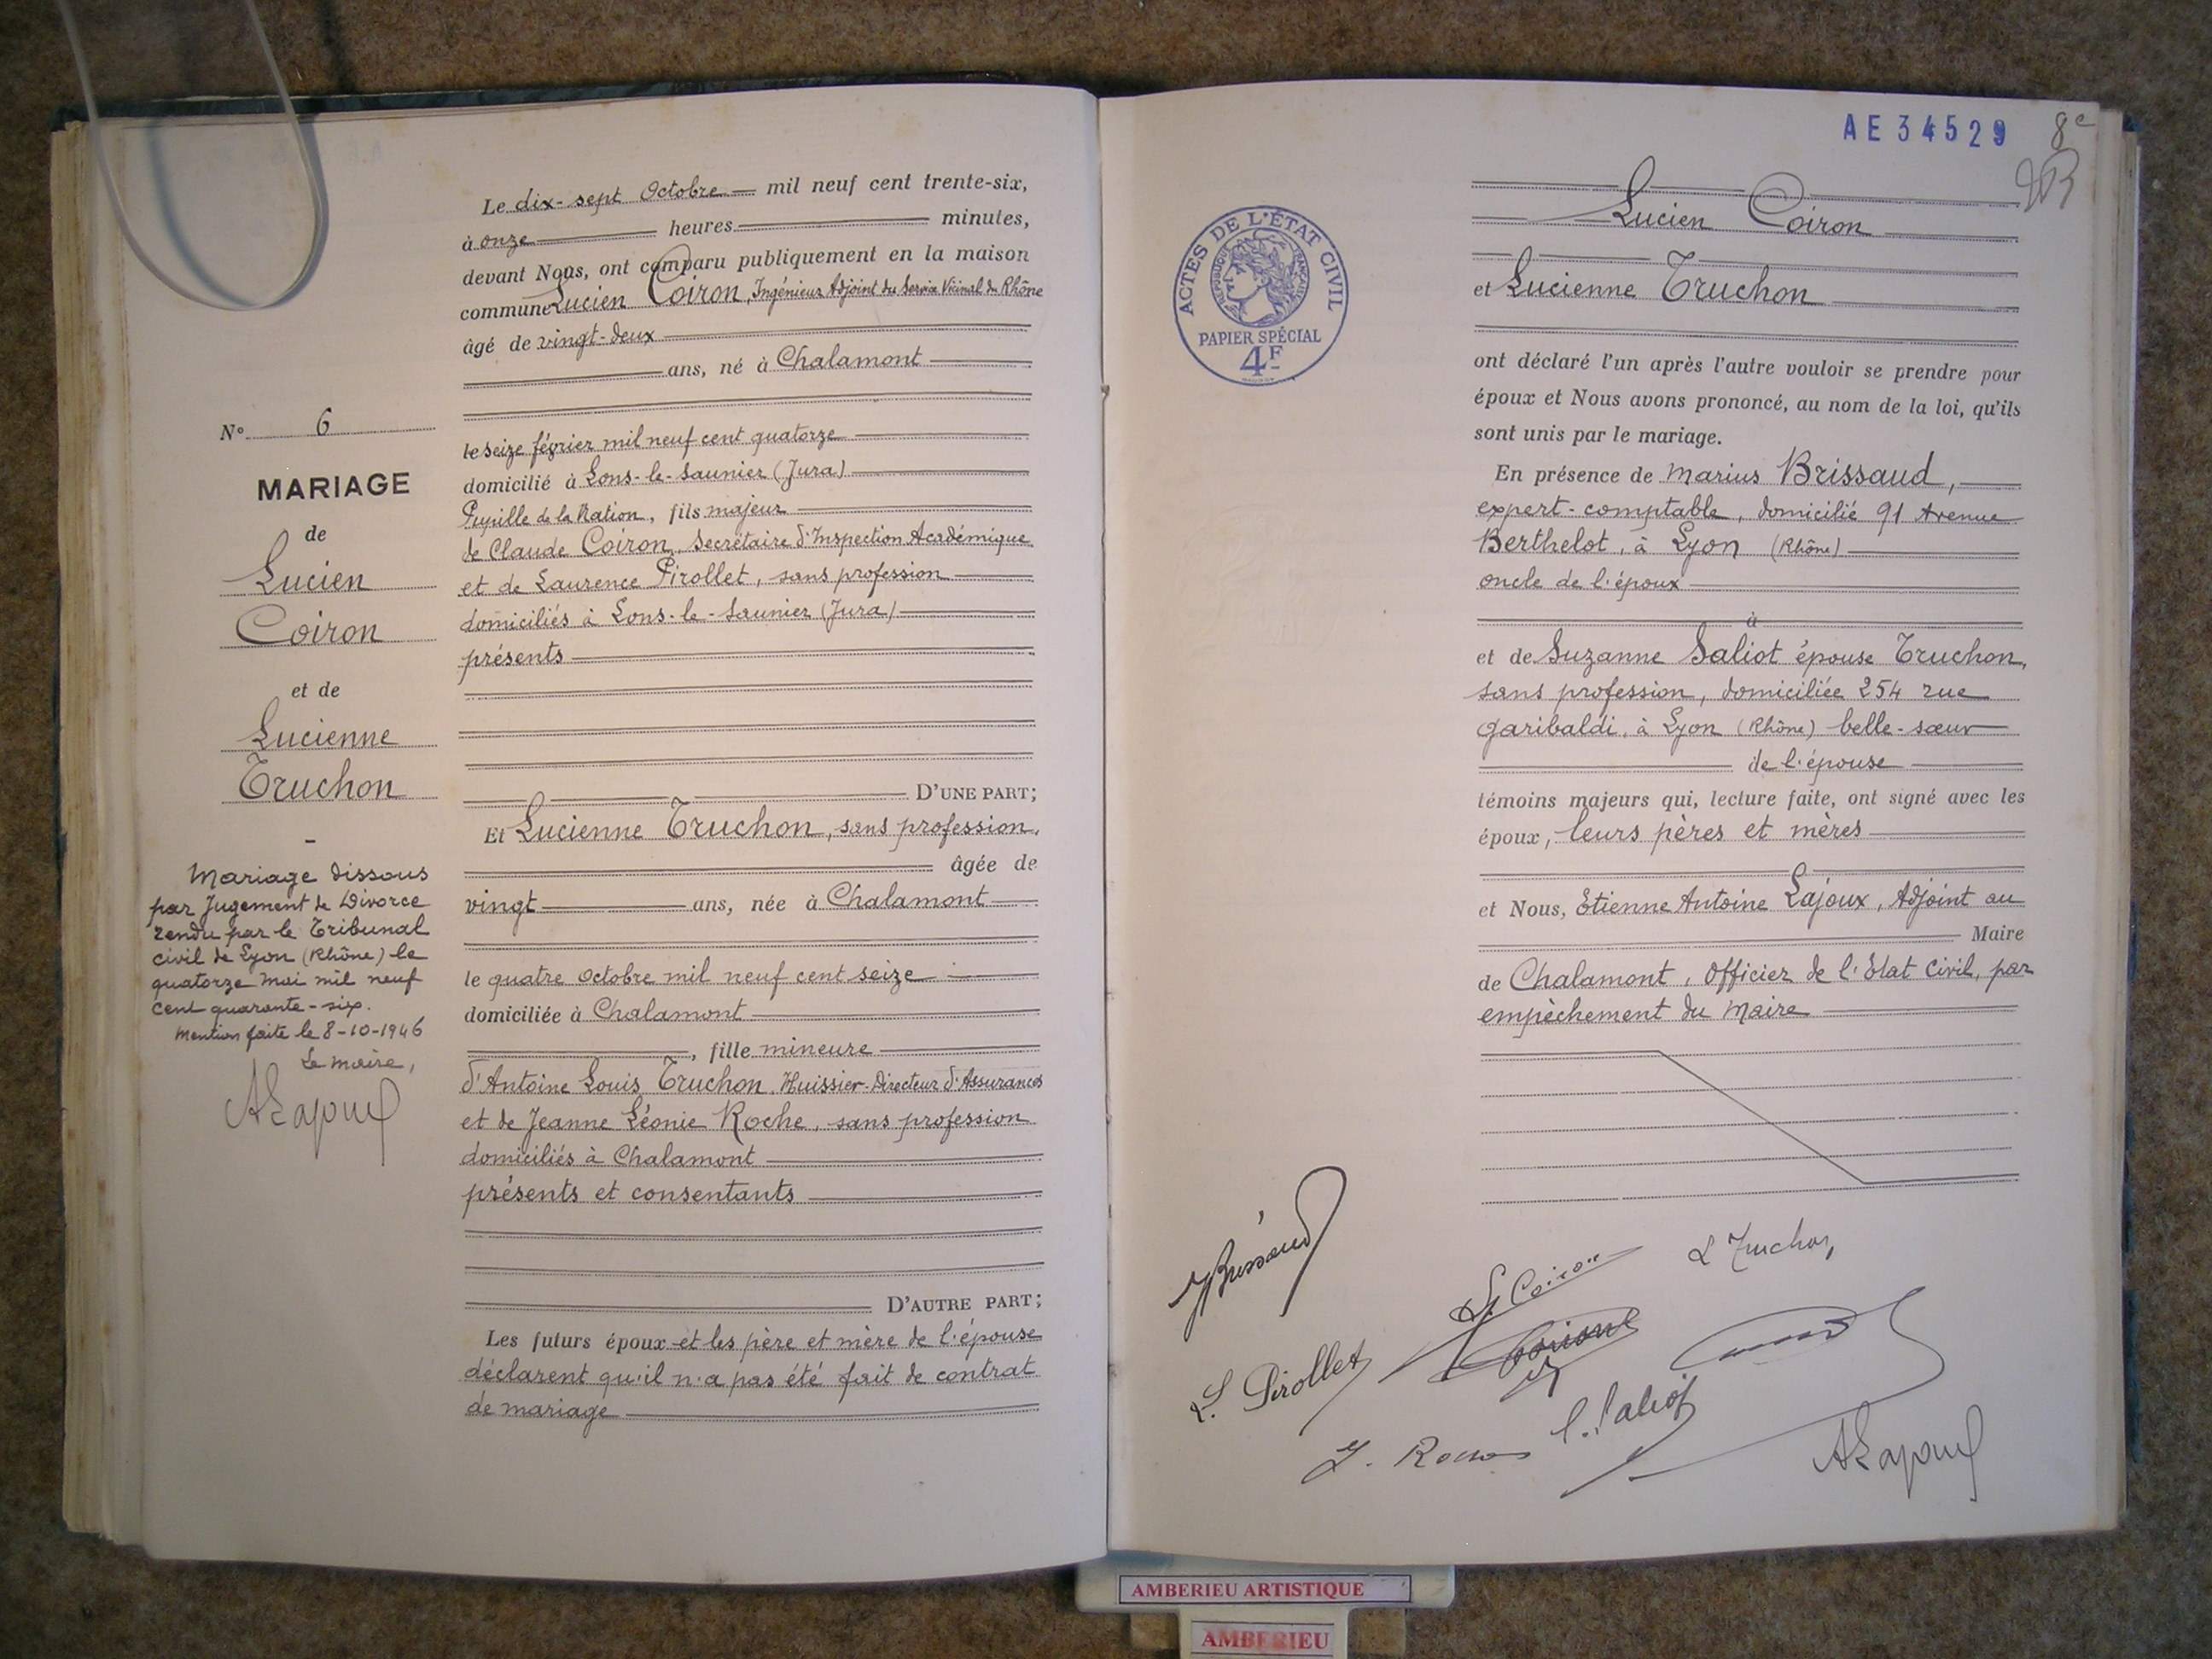 N° 6
MARIAGE
de
Lucien
Coiron
et de
Lucienne
Truchon
Mariage dissous
par Jugement de Divorce
rendu par le Tribunal
civil de Lyon (Rhône) le
quatorze Mai mil neuf
cent quarante-six.
Mention faite le 8-10-1946
Le Maire,
ALajoux
Le dix-sept Octobre mil neuf cent trente-six,
à onze heures minutes,
devant Nous, ont comparu publiquement en la maison
commune Lucien Coiron, Ingénieur Adjoint du Service Vicinal du Rhône
âgé de vingt-deux
ans, né à Chalamont
le seize février mil neuf cent quatorze
domicilié à Lons-le-Saunier (Jura)
Pupille de la Nation, fils majeur
de Claude Coiron, Secrétaire d'Inspection Académique
et de Laurence Pirollet, sans profession
domiciliés à Lons-le-Saunier (Jura)
présents
D'UNE PART;
Et Lucienne Truchon, sans profession,
âgée de
vingt ans, née à Chalamont
le quatre Octobre mil neuf cent seize
domiciliée à Chalamont
, fille mineure
d'Antoine Louis Truchon, Huissier-Directeur d'Assurances
et de Jeanne Léonie Roche, sans profession
domiciliés à Chalamont
présents et consentants
D'AUTRE PART;
Les futurs époux et les père et mère de l'épouse
déclarent qu'il n'a pas été fait de contrat
de mariage
AE34529
8e
ACTES DE L'ÉTAT CIVIL
RÉPUBLIQUE FRANÇAISE
PAPIER SPÉCIAL
4F
Lucien Coiron
et Lucienne Truchon
ont déclaré l'un après l'autre vouloir se prendre pour
époux et Nous avons prononcé, au nom de la loi, qu'ils
sont unis par le mariage.
En présence de Marius Brissaud,
expert-comptable, domicilié 91 Avenue
Berthelot, à Lyon (Rhône)
oncle de l'époux
à
et de Suzanne Saliot épouse Truchon,
sans profession, domiciliée 254 rue
Garibaldi, à Lyon (Rhône) belle-sœur
de l'épouse
témoins majeurs qui, lecture faite, ont signé avec les
époux, leurs pères et mères
et Nous, Etienne Antoine Lajoux, Adjoint au
Maire
de Chalamont, Officier de l'Etat Civil, par
empêchement du Maire
MBrissaud
L Coiron
L Truchon
Coiron
L. Pirollet
S. Saliot
J. Roche
ALajoux
AMBERIEU ARTISTIQUE
AMBERIEU